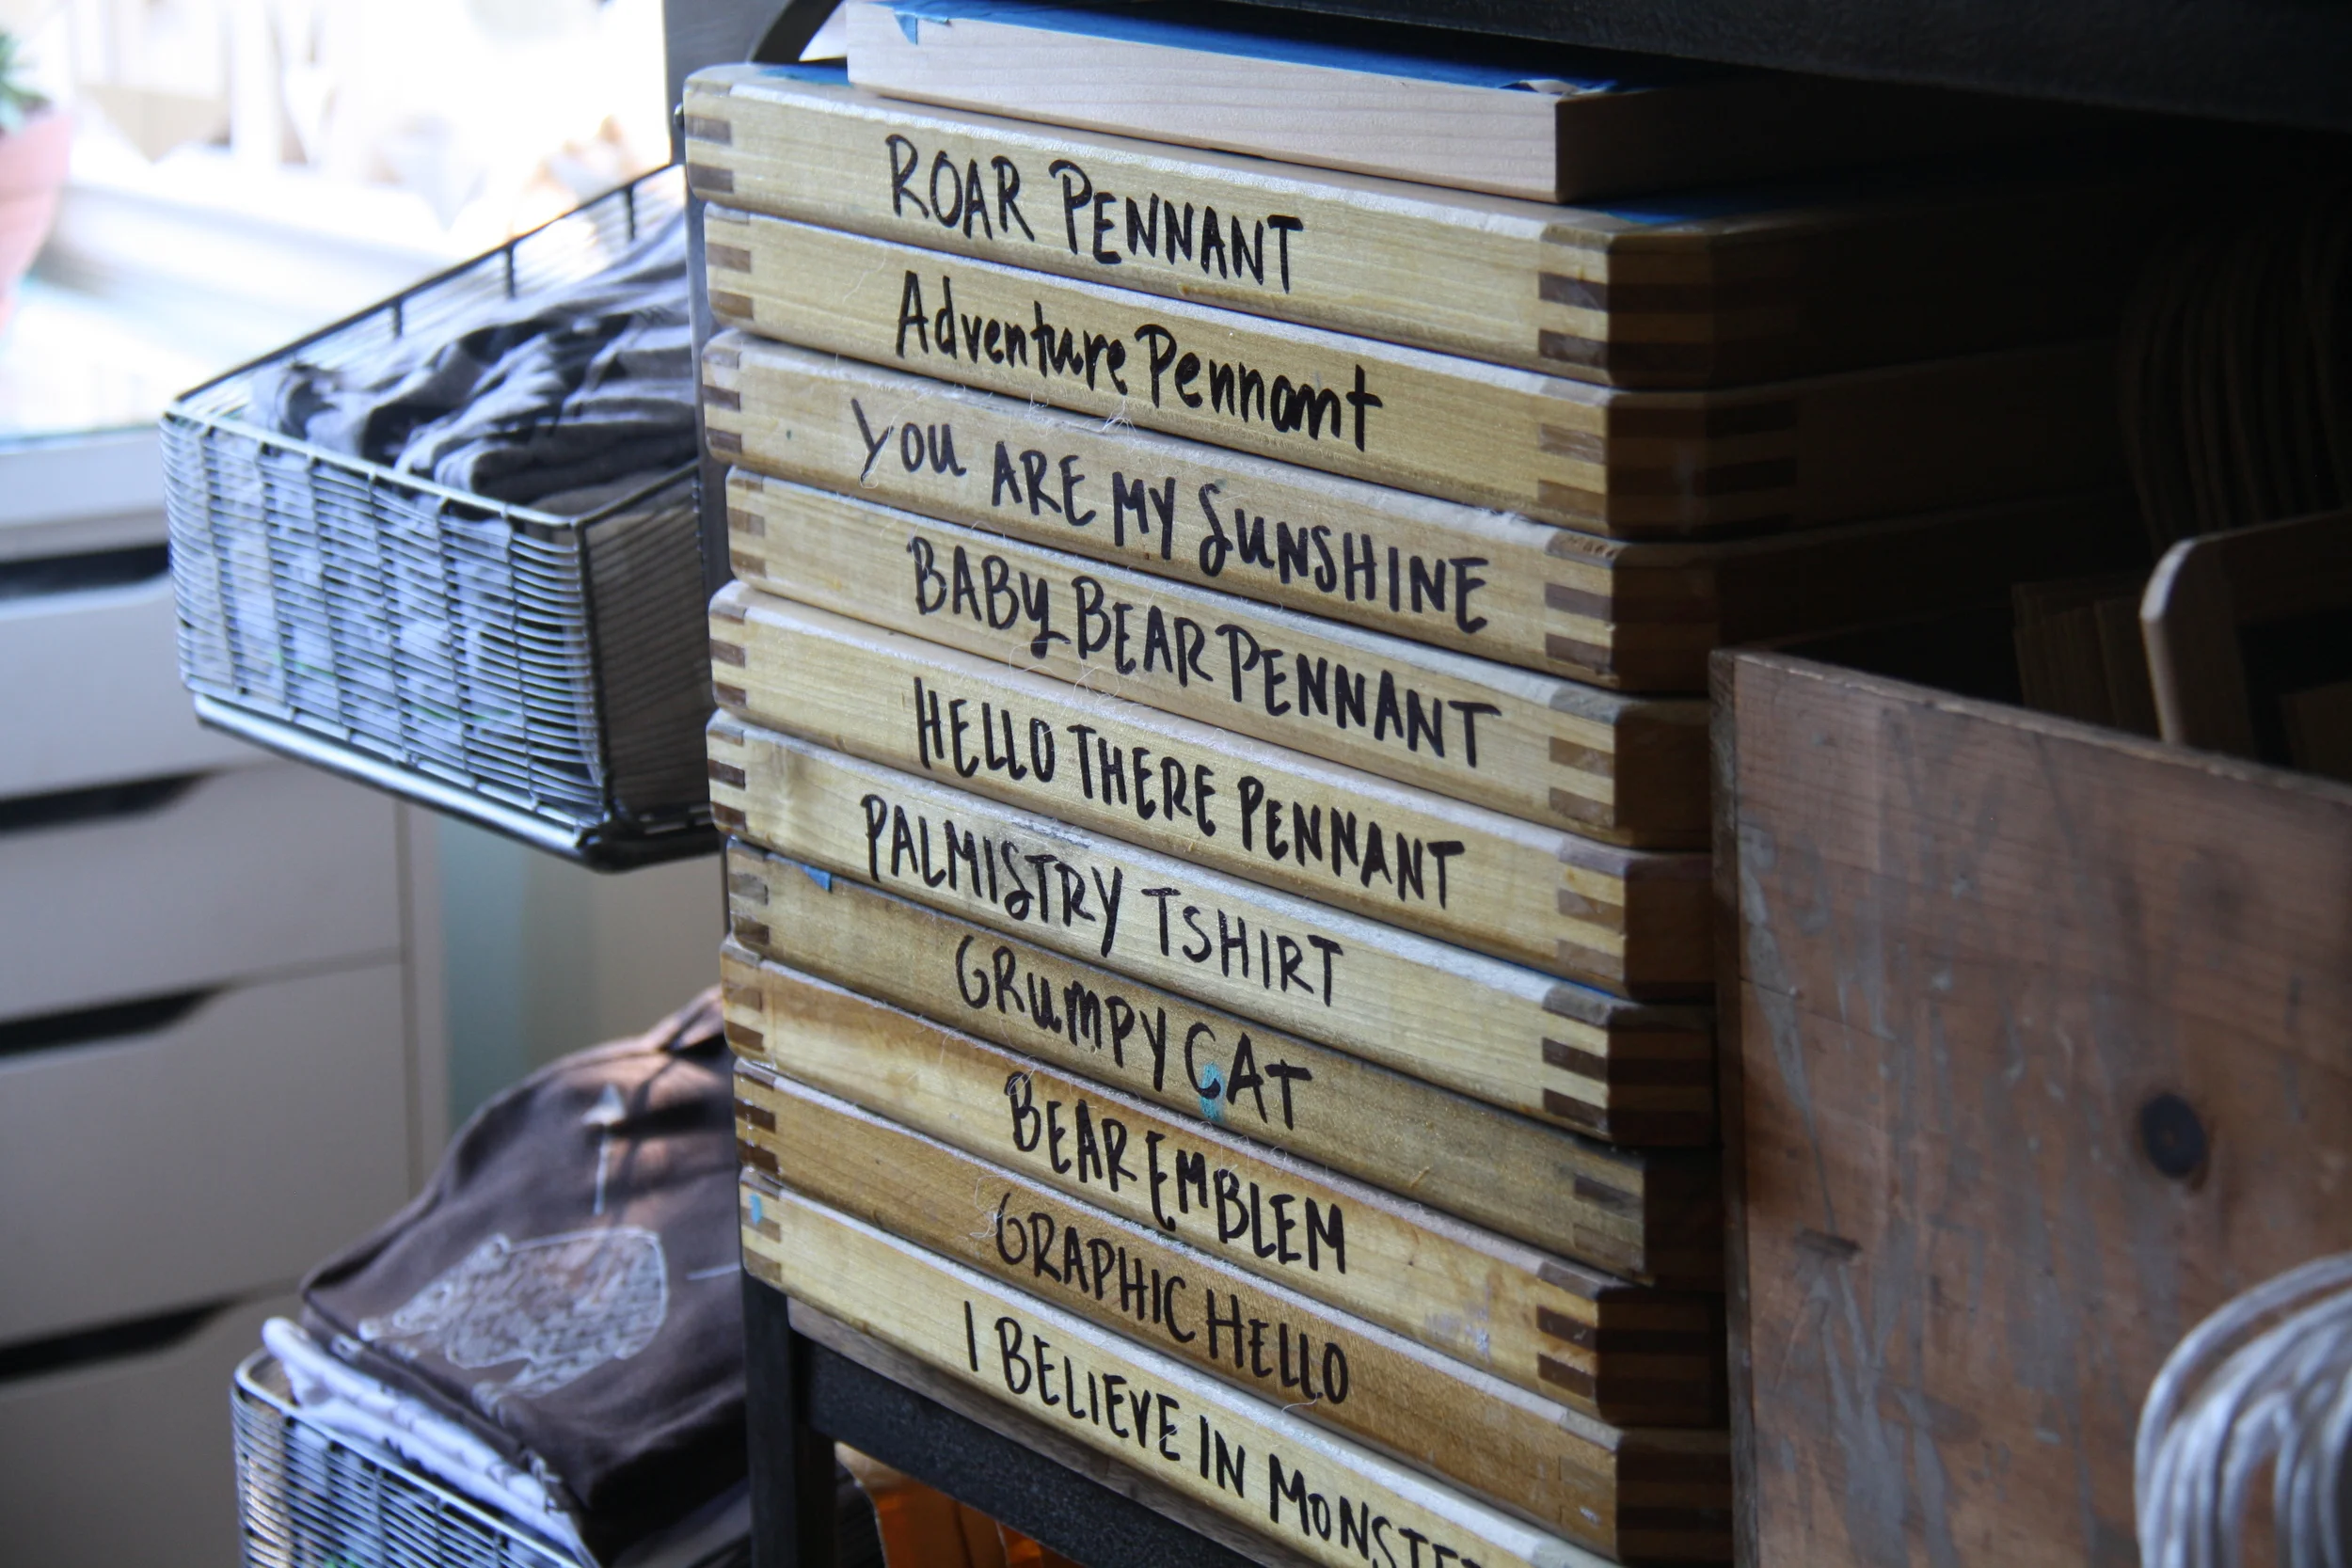 ROAR PENNANT
Adventure Pennant
YOU ARE MY SUNSHINE
BABY BEAR PENNANT
HELLO THERE PENNANT
PALMISTRY TSHIRT
GRUMPY CAT
BEAR EMBLEM
GRAPHIC HELLO
I BELIEVE IN MONSTE